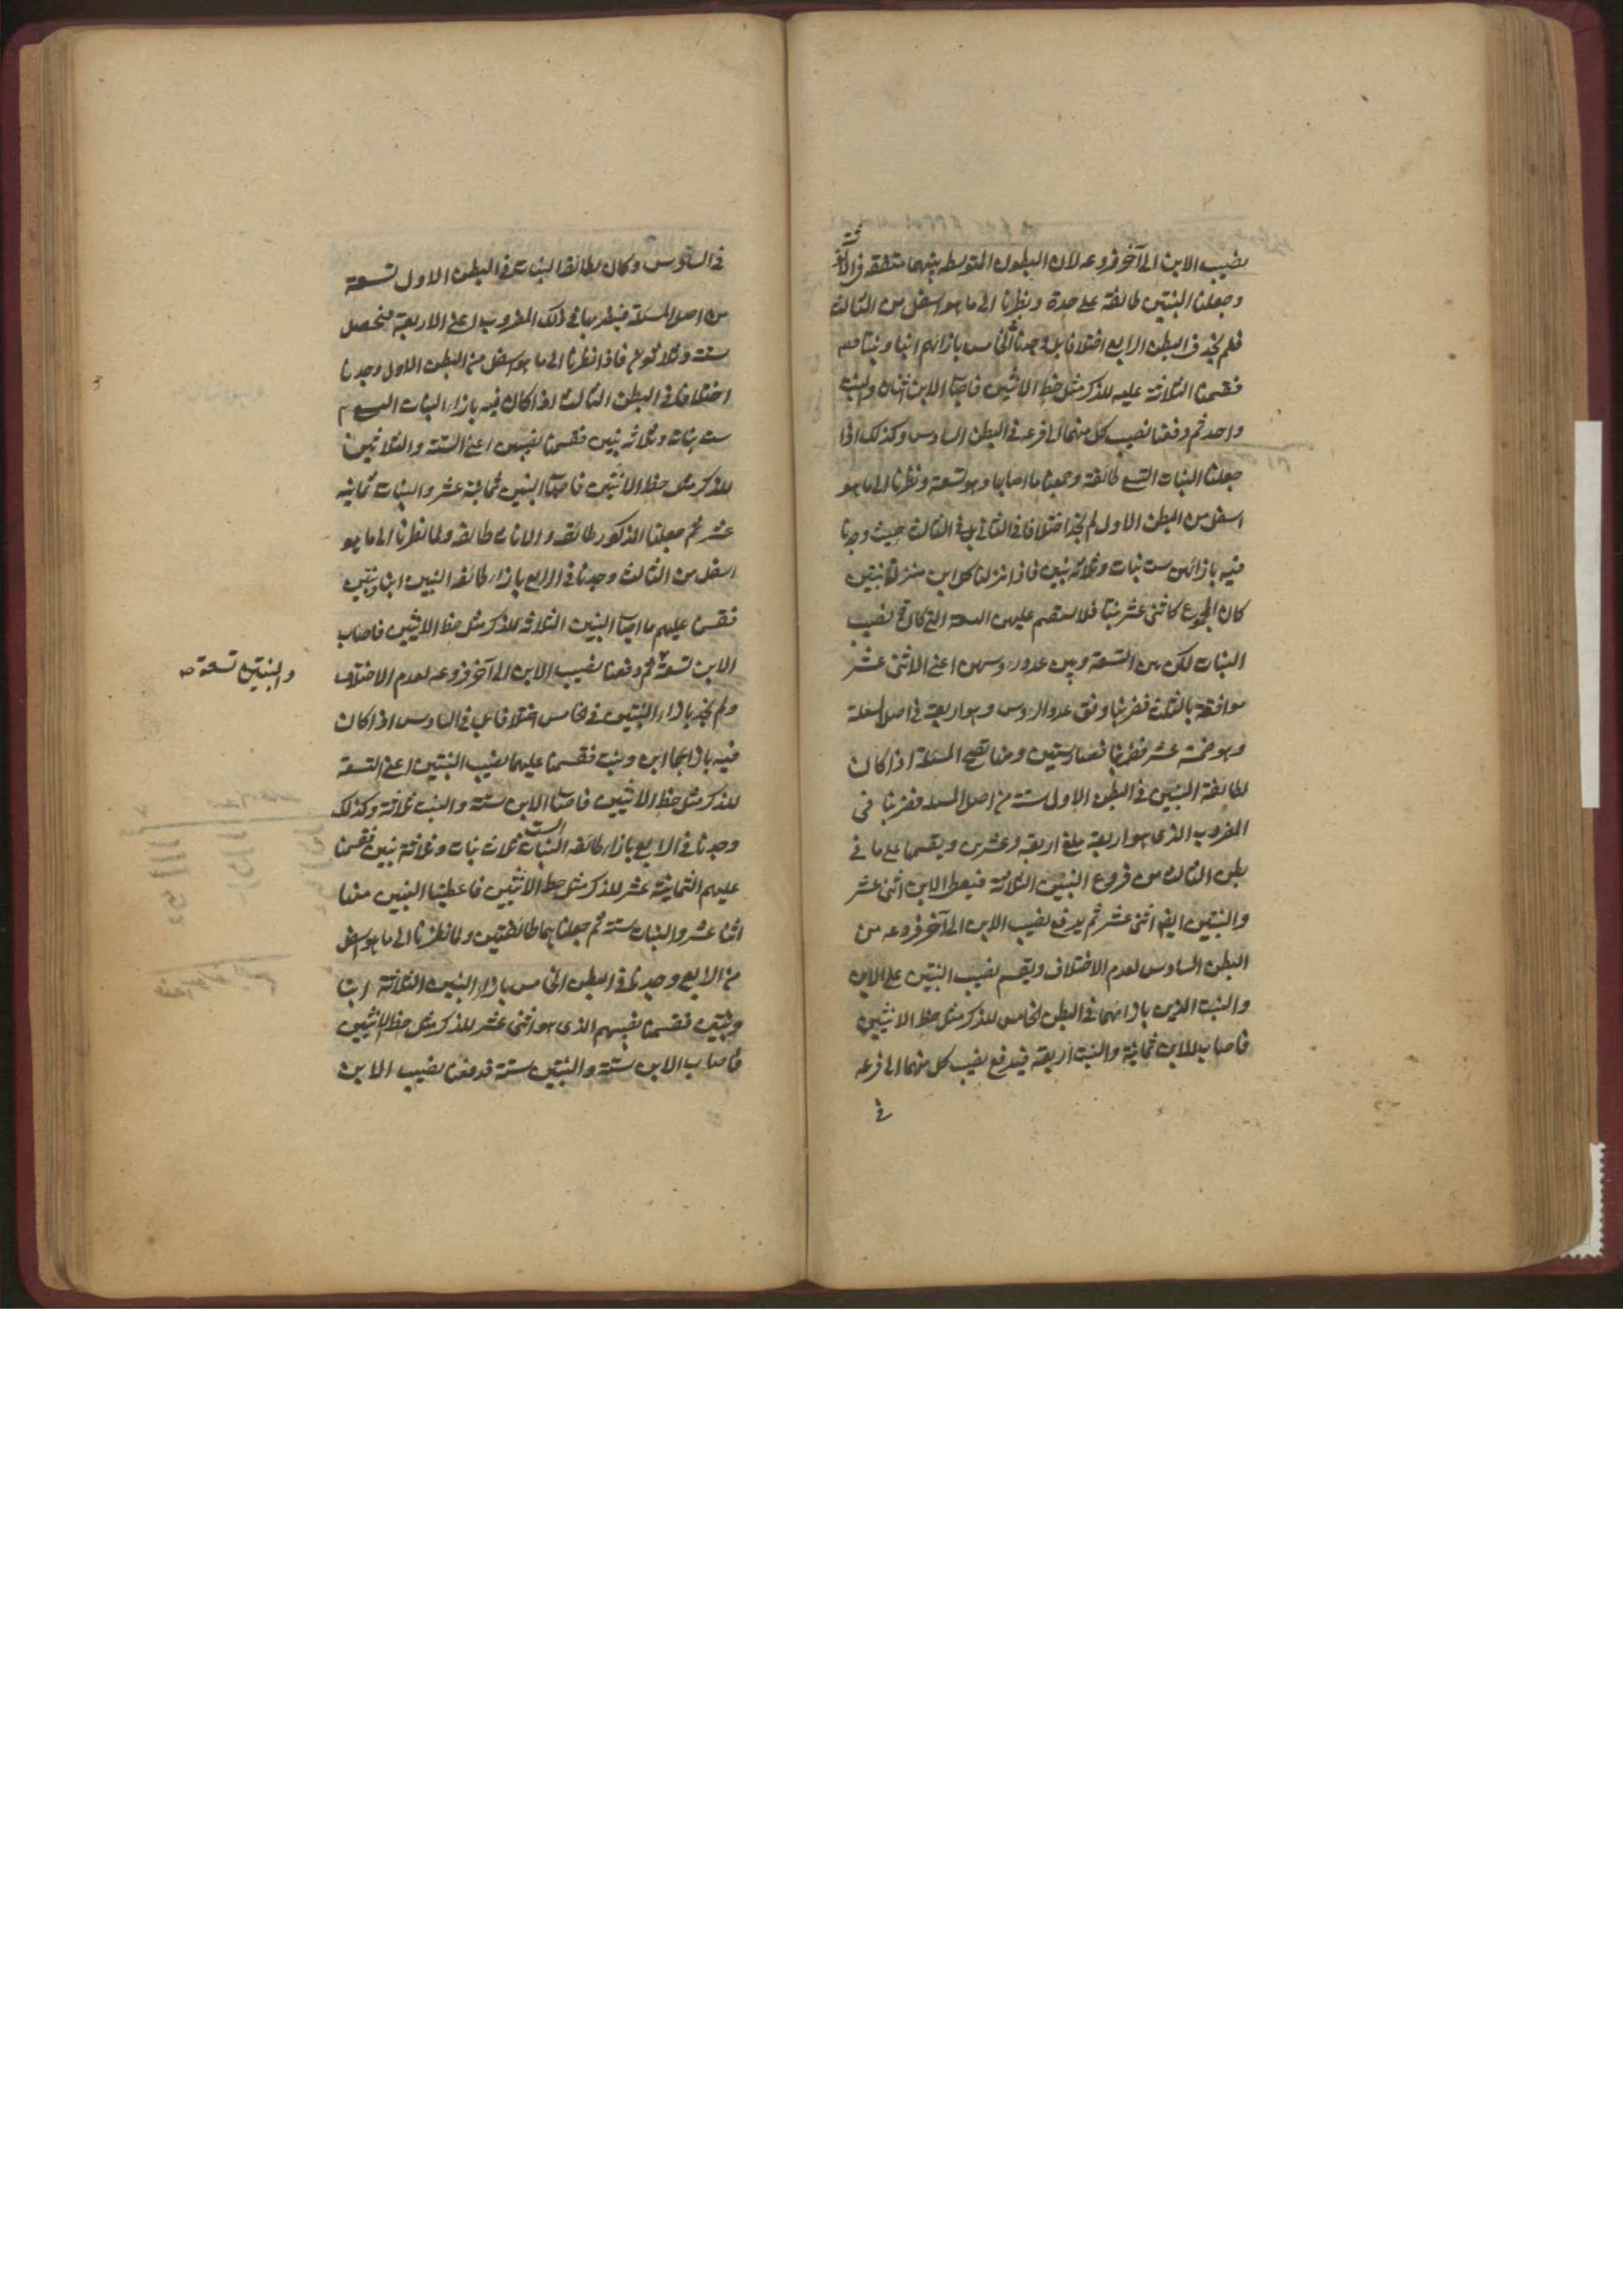 نصيب الابن الى آخر فروعه لان البطون المتوسطه بينهما متفقه فى الانوثة
وجعلنا البنتين طائفة على حدة ونظرنا الى ما هو اسفل من الثالث
فلم نجد فى البطن الرابع اختلافا بل وجدنا فى الخامس بازائهم ابنا وبنتا
فقسمنا الثلاثة عليه للذكر مثل حظ الانثيين فاصاب الابن اثنان والبنت
واحد ثم دفعنا نصيب كل منهما الى فرعه فى البطن السادس وكذلك اذا
جعلنا البنات التسع طائفة وجمعنا ما اصابها وهو تسعة ونظرنا الى ما هو
اسفل من البطن الاول لم نجد اختلافا فى الثانى بل فى الثالث حيث وجدنا
فيه بازائهن ست بنات وثلاثة بنين فاذا نزلنا كل ابن منزلة بنتين
كان المجموع كاثنى عشر بنتا فلا تنقسم عليهن التسعة التى كانت نصيب
البنات لكن بين التسعة وبين عدد رؤسهن اعنى الاثنى عشر
موافقة بالثلث فضربنا وفق عدد الرؤس وهو اربعة فى اصل المسئلة
وهو خمسة عشر فصار ستين ومنها تصح المسئلة اذ كان
لطائفة البنين فى البطن الاول ستة من اصل المسئلة فضربنا فى
المضروب الذى هو اربعة بلغ اربعة وعشرين ويقسمها على ما فى
بطن الثالث من فروع البنين الثلاثة فيعطى الابن اثنى عشر
والبنتين ايضا اثنى عشر ثم يدفع نصيب الابن الى آخر فروعه من
البطن السادس لعدم الاختلاف ويقسم نصيب البنتين على الابن
والبنت الذين بازائهما فى البطن الخامس للذكر مثل حظ الانثيين
فاصاب للابن ثمانية والبنت اربعة فيدفع نصيب كل منهما الى فرعه
فى
فى السادس وكان لطائفة البنات فى البطن الاول تسعة
من اصل المسئلة فيضربها فى ذلك المضروب اعنى الاربعة فيحصل
ستة وثلاثون فاذا نظرنا الى ما هو اسفل من البطن الاول وجدنا
اختلافا فى البطن الثالث اذا كان فيه بازاء البنات التسع
ست بنات وثلاثة بنين فقسمنا نصيبهن اعنى الستة والثلاثين
للذكر مثل حظ الانثيين فاصاب البنين ثمانية عشر والبنات ثمانية
عشر ثم جعلنا الذكور طائفه والاناث طائفه ولما نظرنا الى ما هو
اسفل من الثالث وجدنا فى الرابع بازاء طائفة البنين ابن وبنتين
فقسمنا عليهم ما اصاب البنين الثلاثة للذكر مثل حظ الانثيين فاصاب
الابن تسعة ثم دفعنا نصيب الابن الى آخر فروعه لعدم الاختلاف
والبنتين تسعة صح
ولم نجد بازاء البنتين فى الخامس اختلافا بل فى السادس اذ كان
فيه بازائهما ابن وبنت فقسمنا عليهما نصيب البنتين اعنى التسعة
للذكر مثل حظ الانثيين فاصاب الابن ستة والبنت ثلاثة وكذلك
وجدنا فى الرابع بازاء طائفة البنات الست ثلاث بنات وثلاثة بنين فقسمنا
عليهم الثمانية عشر للذكر مثل حظ الانثيين فاعطينا البنين منها
اثنا عشر والبنات ستة ثم جعلناهما طائفتين ولما نظرنا الى ما هو اسفل
من الرابع وجدنا فى البطن الخامس بازاء البنين الثلاثة ابنا
وبنتين فقسمنا نصيبهم الذى هو اثنى عشر للذكر مثل حظ الانثيين
فاصاب الابن ستة والبنتين ستة فدفعنا نصيب الابن